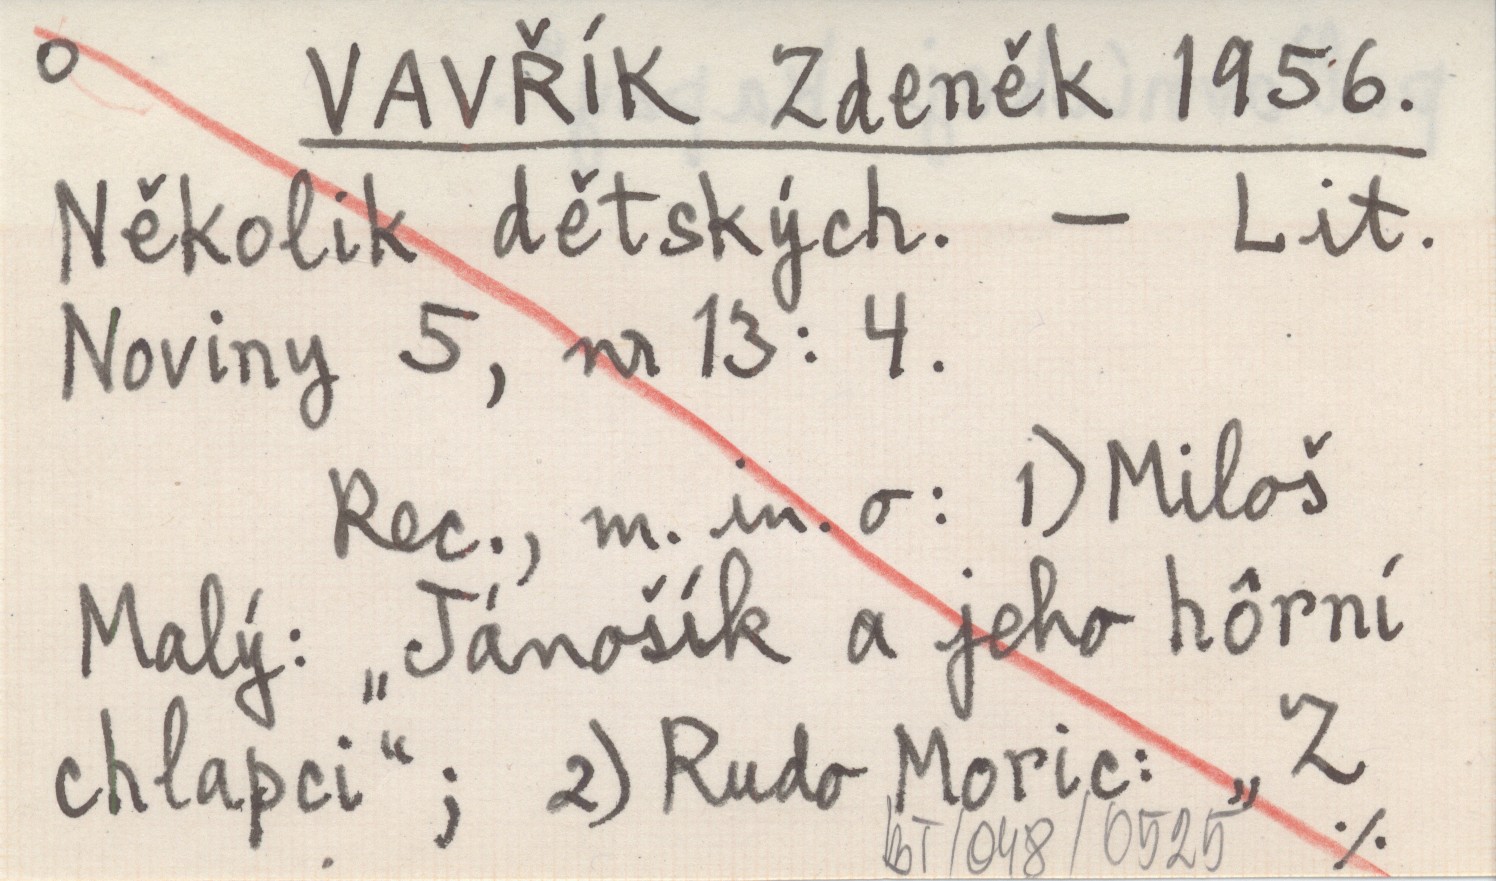 o VAVŘÍK Zdeněk 1956.
Několik dětských. — Lit.
Noviny 5, nr 13: 4.
Rec., m. in. o: 1) Miloš
Malý: „Jánošík a jeho hôrní
chlapci“; 2) Rudo Moric: „Z
BT/048/0525 ./.